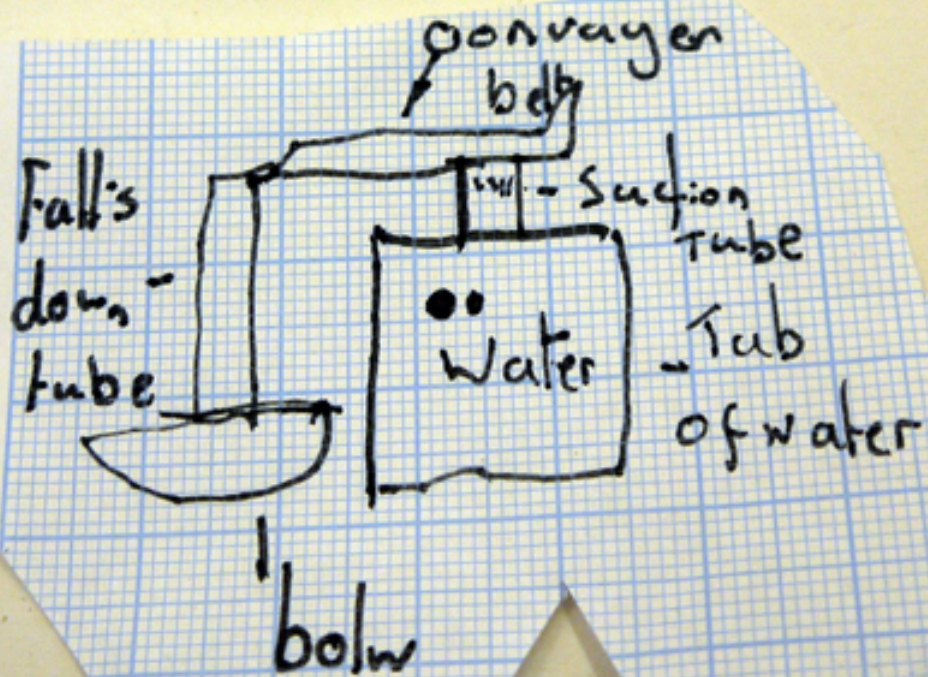 Convayen
belt
Fall's
down
tube
Suction
Tube
Water
Tab
of water
bolw